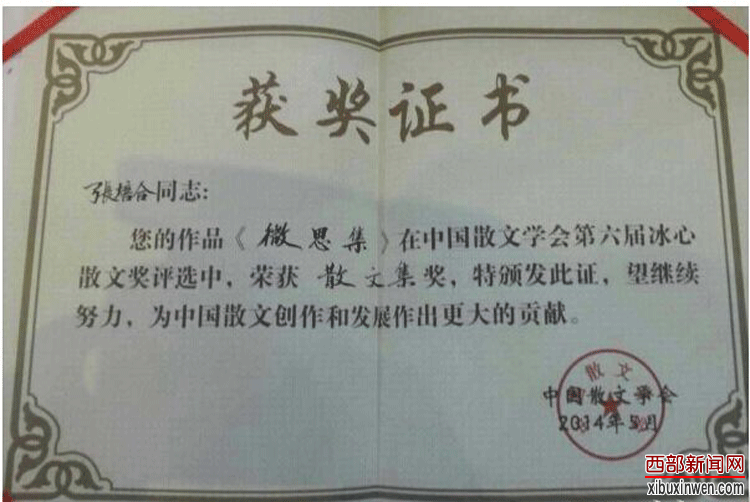 获奖证书
張培合同志:
您的作品《微思集》在中国散文学会第六届冰心
散文奖评选中,荣获 散文集奖,特颁发此证,望继续
努力,为中国散文创作和发展作出更大的贡献。
散文
中国散文学会
2014年5月
西部新闻网
xibuxinwen.com